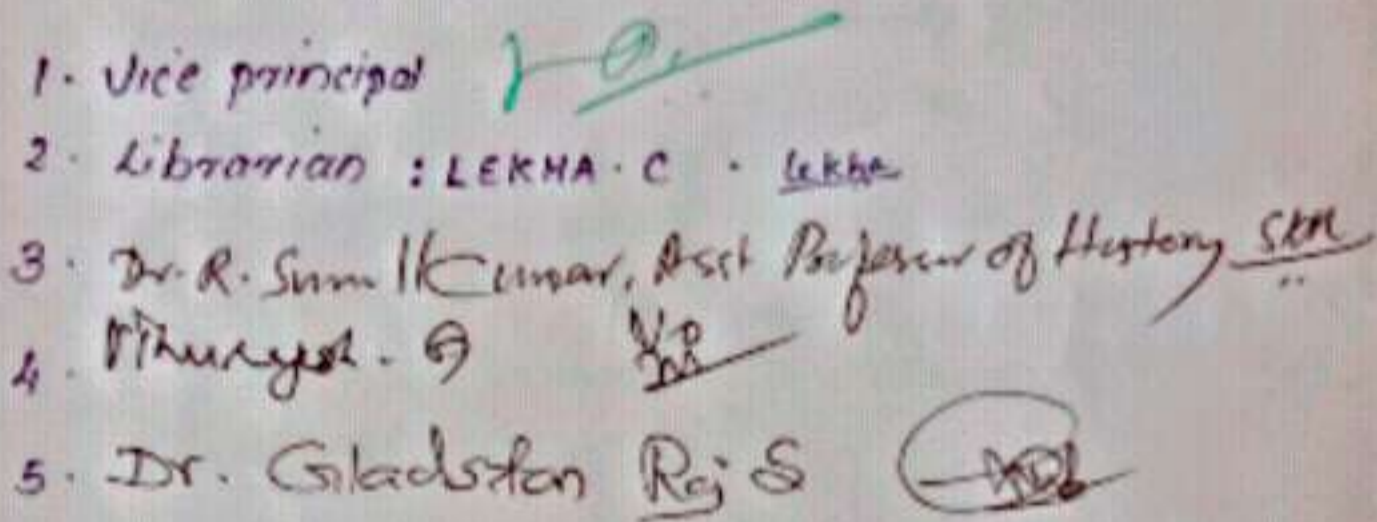 1. Vice principal
2. Librarian : LEKHA. C . Lekha
3. Dr. R. Sunil Kumar, Asst Professor of History
4.
5. Dr. Gladston Raj S